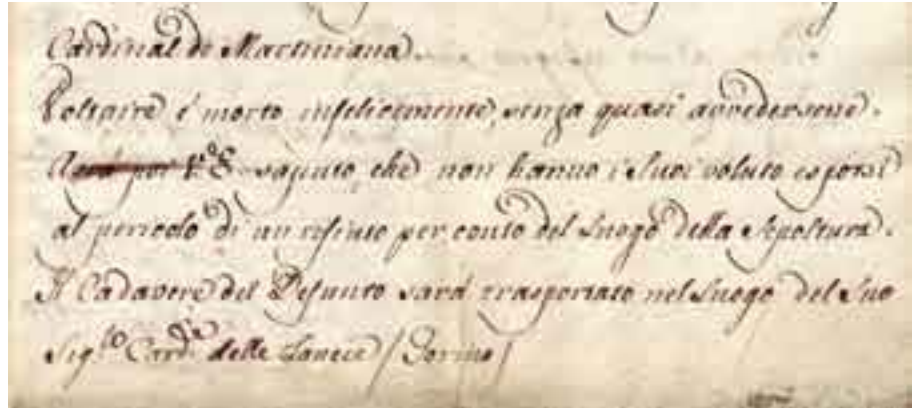 Cardinal di Martiniana.
Voltaire è morto infelicemente, senza quasi avvedersene.
saputo, che non hanno i Suoi voluto esporsi
al pericolo di un rifiuto per conto del Luogo della Sepoltura.
Il Cadavere del Defunto sarà trasportato nel Luogo del Suo
Sig.to Card.le delle Lanece / Torino /